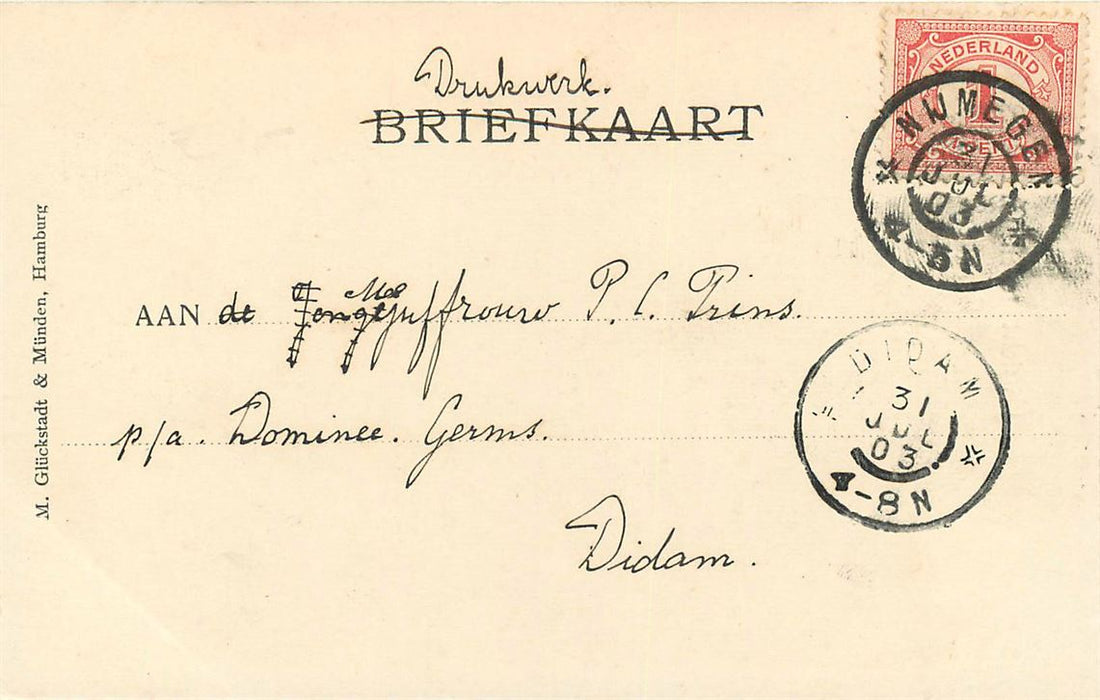 Drukwerk.
BRIEFKAART
NEDERLAND
1
NIJMEGEN
31
JUL
03
4-5N
AAN de Jonge Mej Juffrouw P. C. Prins.
p/a. Dominee. Germs.
Didam.
DIDAM
31
JUL
03
4-8N
M. Glückstadt & Münden, Hamburg